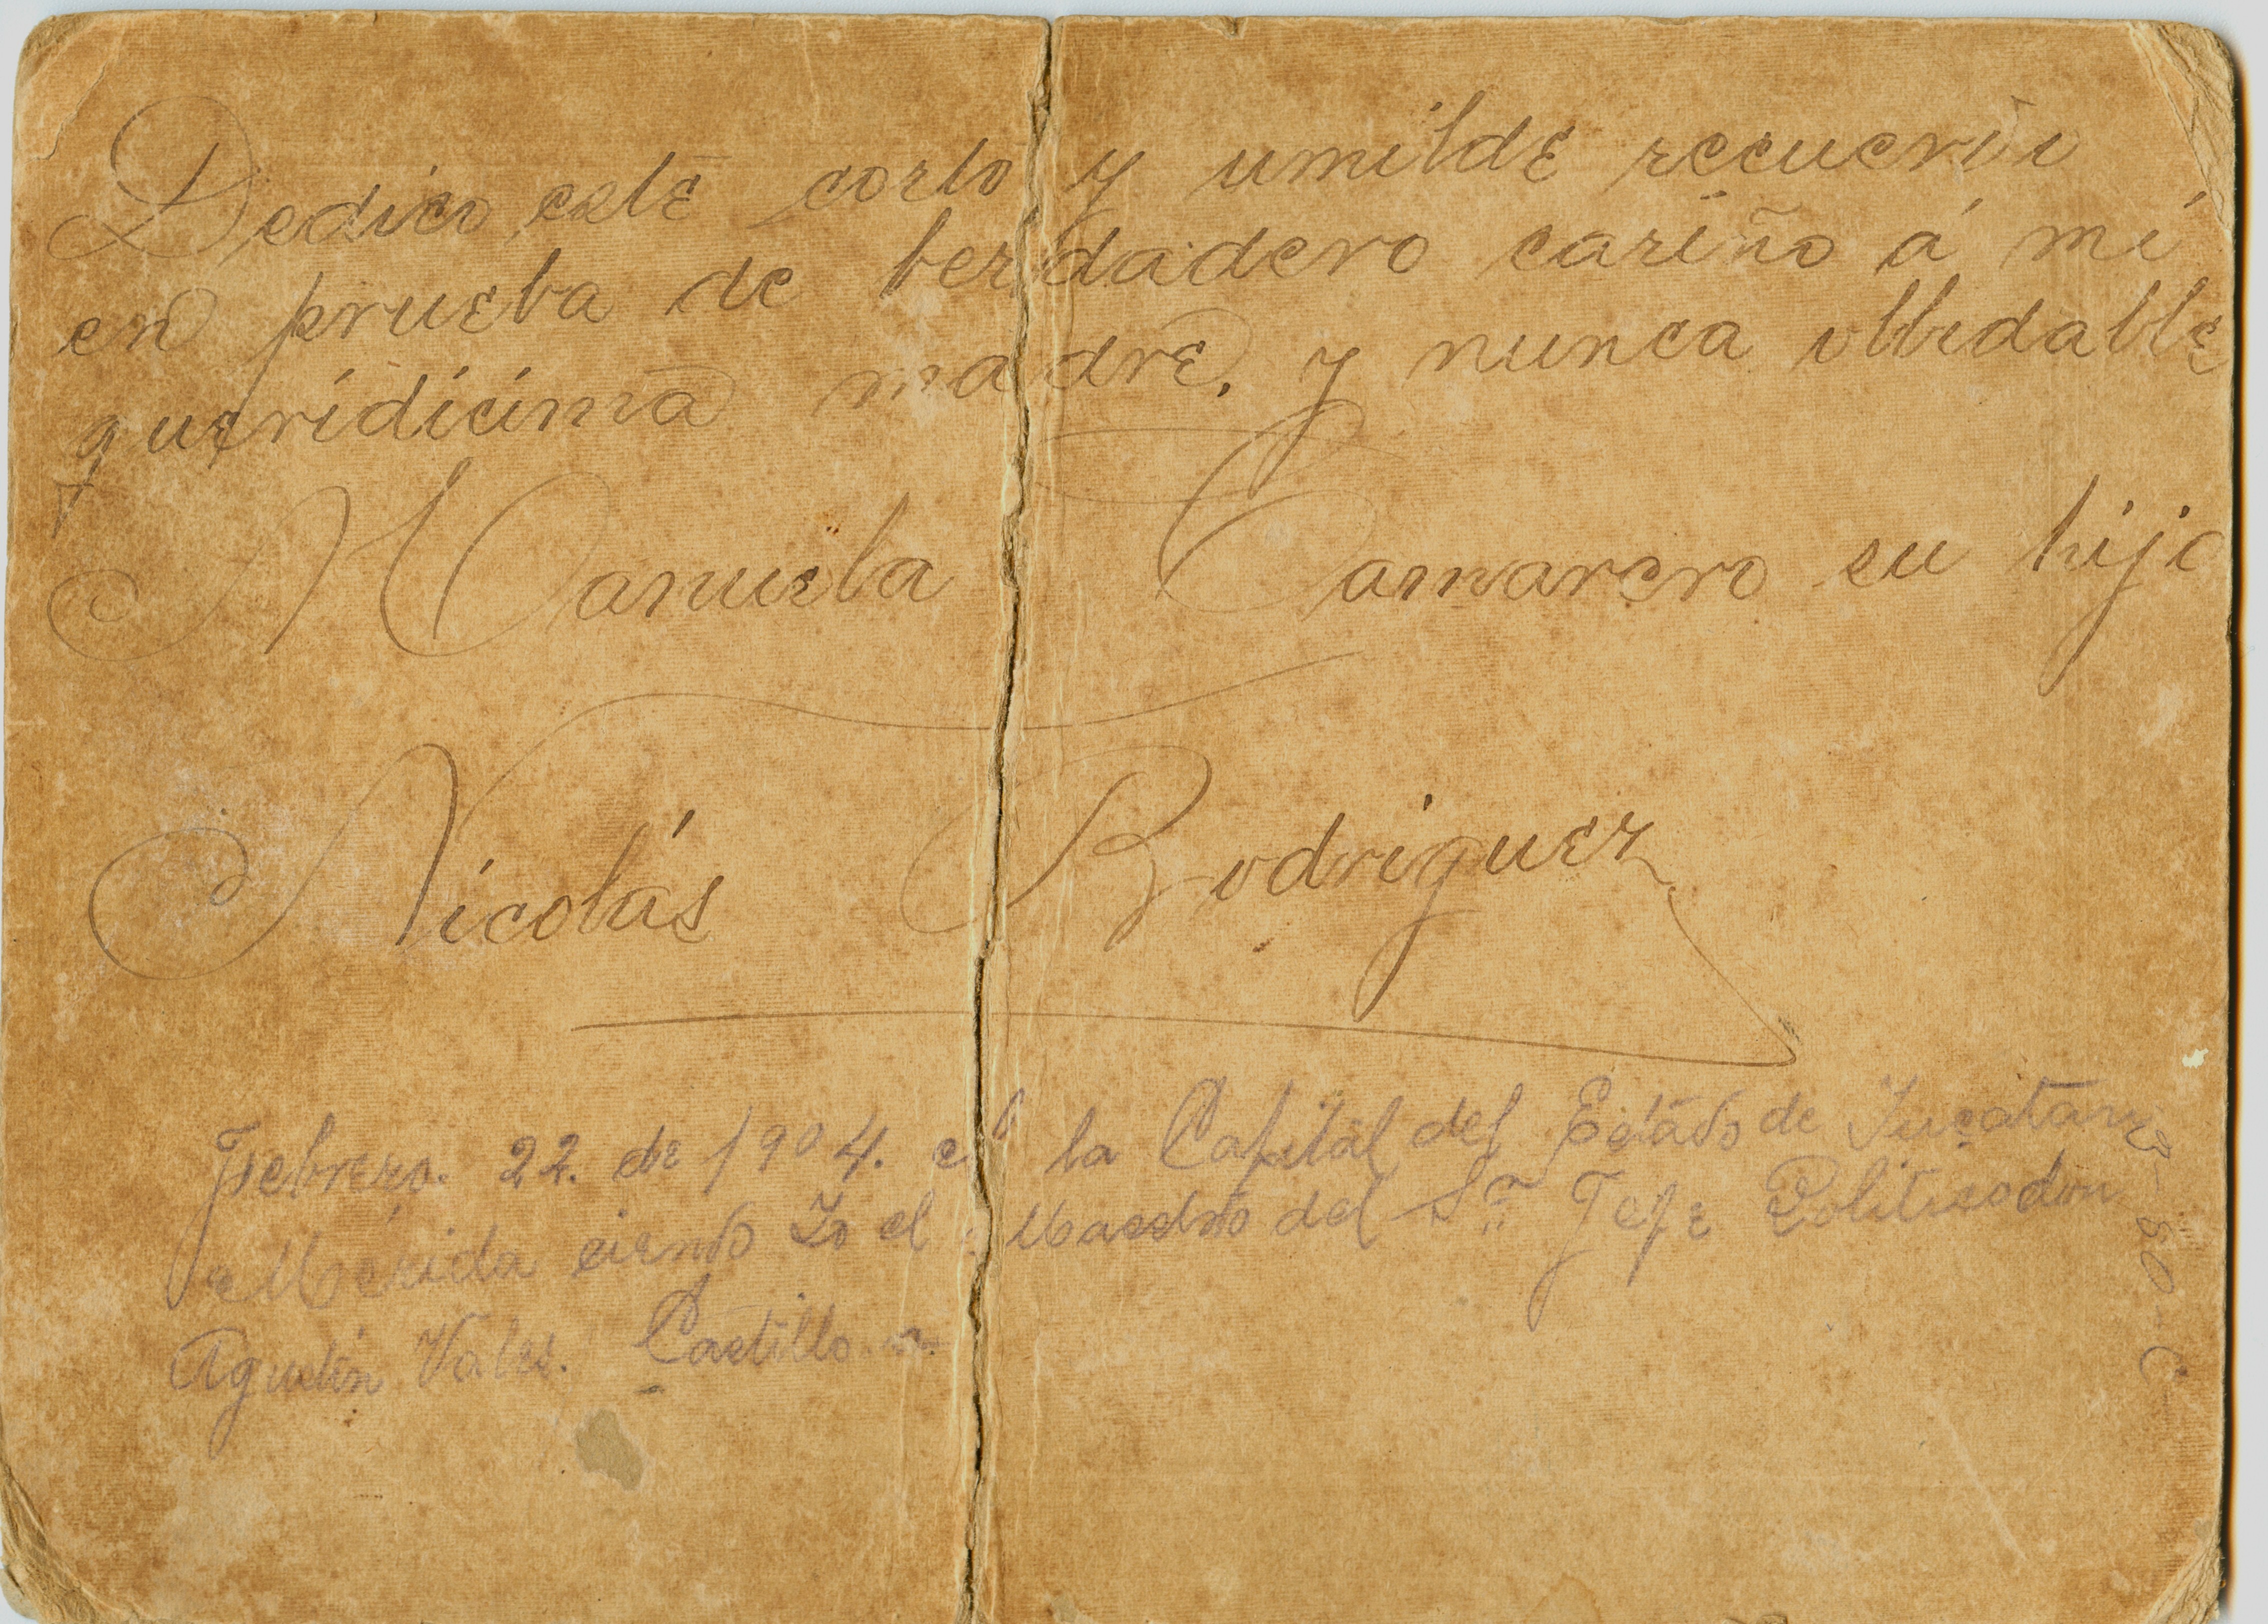 Dedico este corto y umilde recuerdo
en prueba de berdadero cariño á mi
queridicima madre. y nunca olbidable
Manuela Camarero su hijo
Nicolás Rodriguez
Febrero. 22. de 1904. en la Capital del Estado de Yucatan
Mérida siendo Yo el Maestro del Sr. Jefe Politico don
Agustin Vales. Castillo